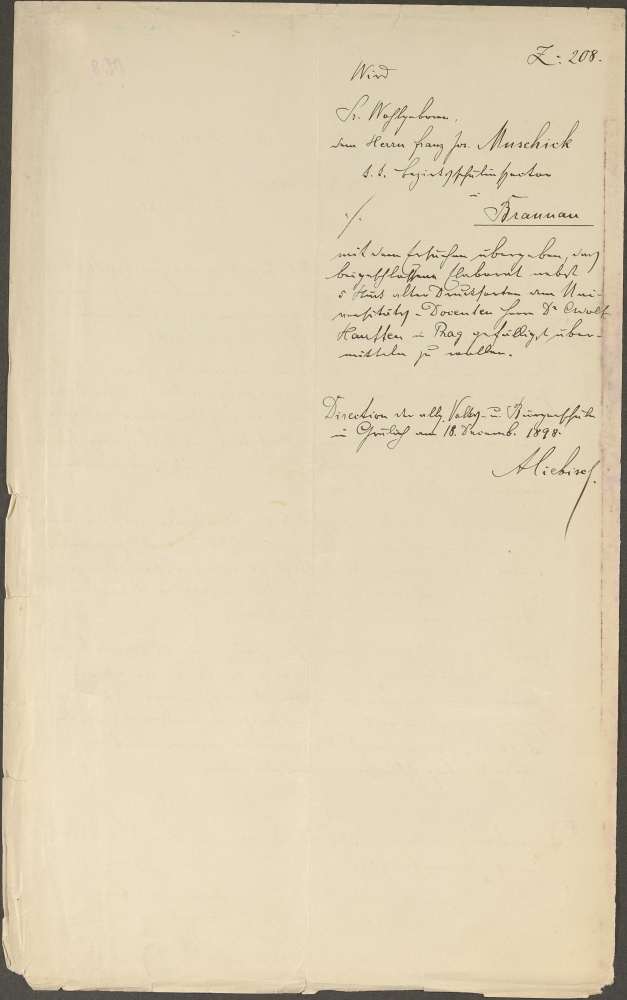 Z: 208.
Wird
Sr. Wohlgeboren,
dem Herrn Franz Jos. Muschick
k. k. Bezirksschulinspector
in
./.
Braunau
mit dem Ersuchen übergeben, das
beigeschlossene Elaborat nebst
5 Stück alter Drucksorten dem Uni-
versitäts-Docenten Herrn Dr
Hauffen in Prag gefälligst über-
mitteln zu wollen.
Direction der allg. Volks- u. Bürgerschule
in am 18. Decemb. 1898.